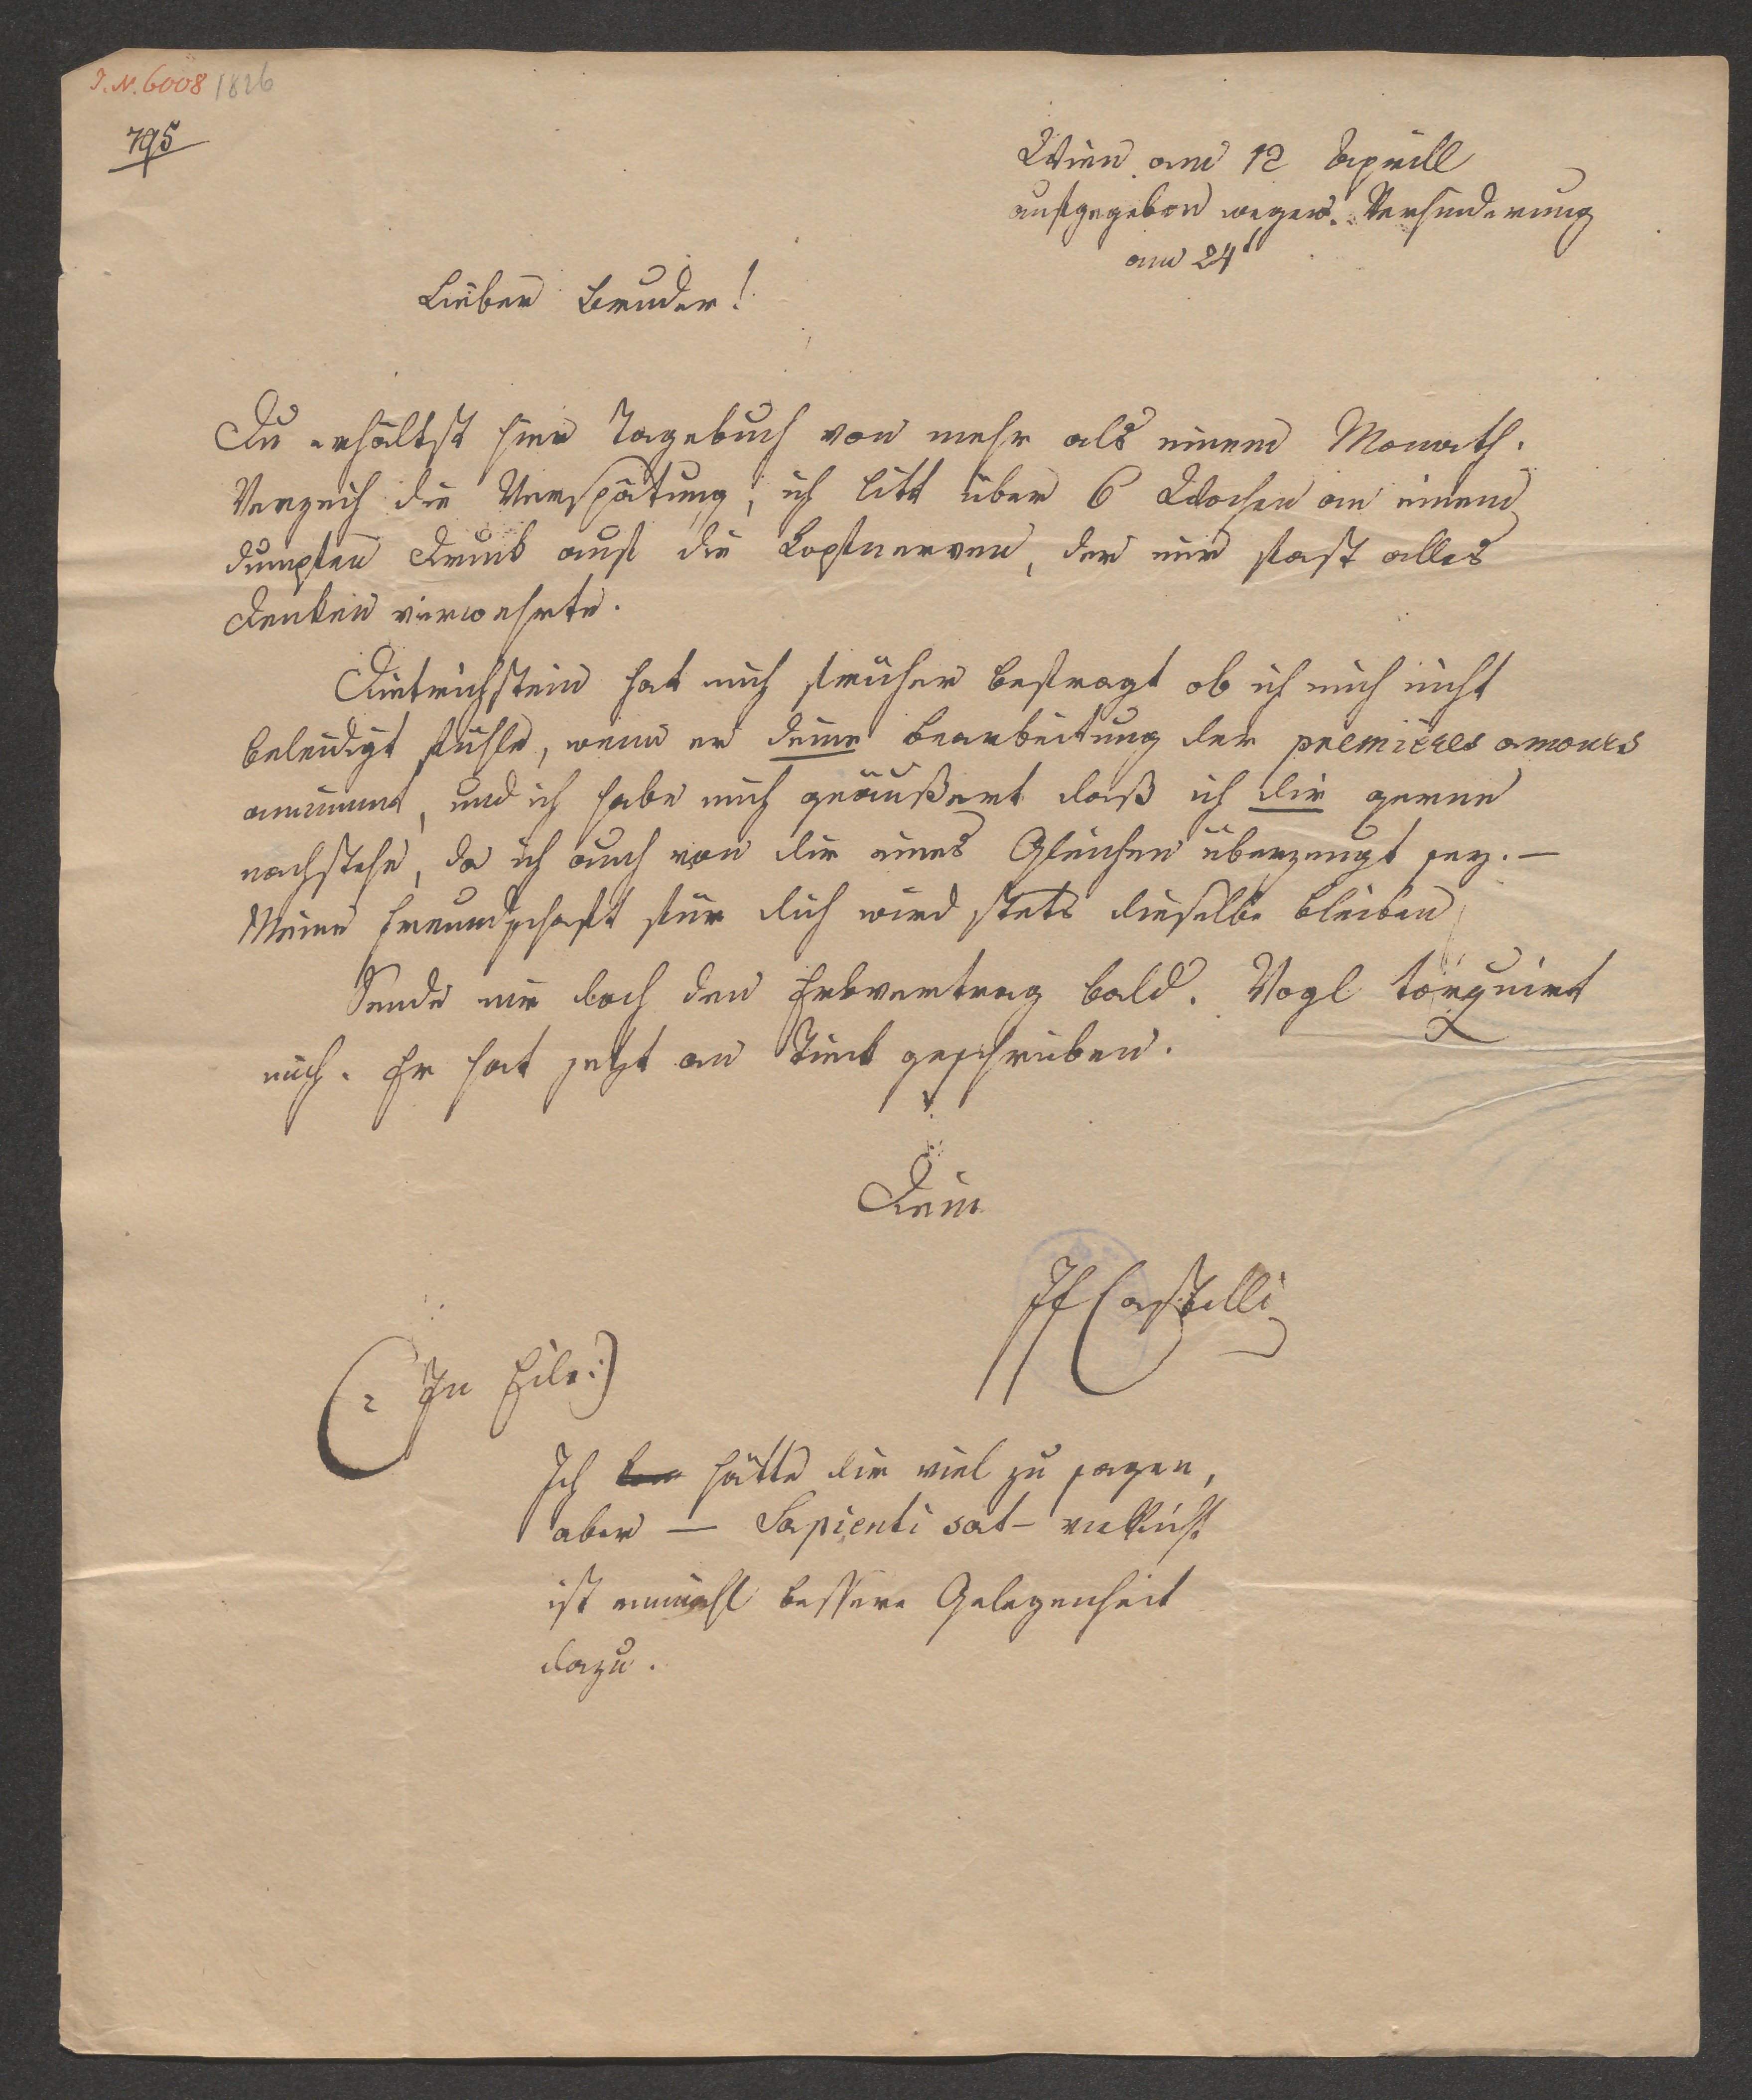 I. N. 6008 1826
795
Wien am 12 Aprill
aufgegeben wegen Verhinderung
am 24t
Lieber Bruder!
Du erhältst hier Tagebuch von mehr als einem Monath.
Verzeih die Verspätung, ich litt über 6 Wochen an einem
dumpfen Druck auf die Kopfnerven, der mir fast alles
Denken verwehrte.
Dietrichstein hat mich früher befragt ob ich mich nicht
beleidigt fühle, wenn er deine Bearbeitung der premières amours
annimmt, und ich habe mich geäußert daß ich dir gerne
nachstehe, da ich auch von dir eines Gleichen überzeugt sey. —
Meine Freundschaft für dich wird stets dieselbe bleiben
Sende mir doch den Erbvertrag bald. Vogl torquirt
mich. Er hat jetzt an Tieck geschrieben.
Dein
IF Castelli
(: In Eile :)
Ich hätte dir viel zu sagen,
aber — Sapienti sat — vielleicht
ist einmahl bessere Gelegenheit
dazu.